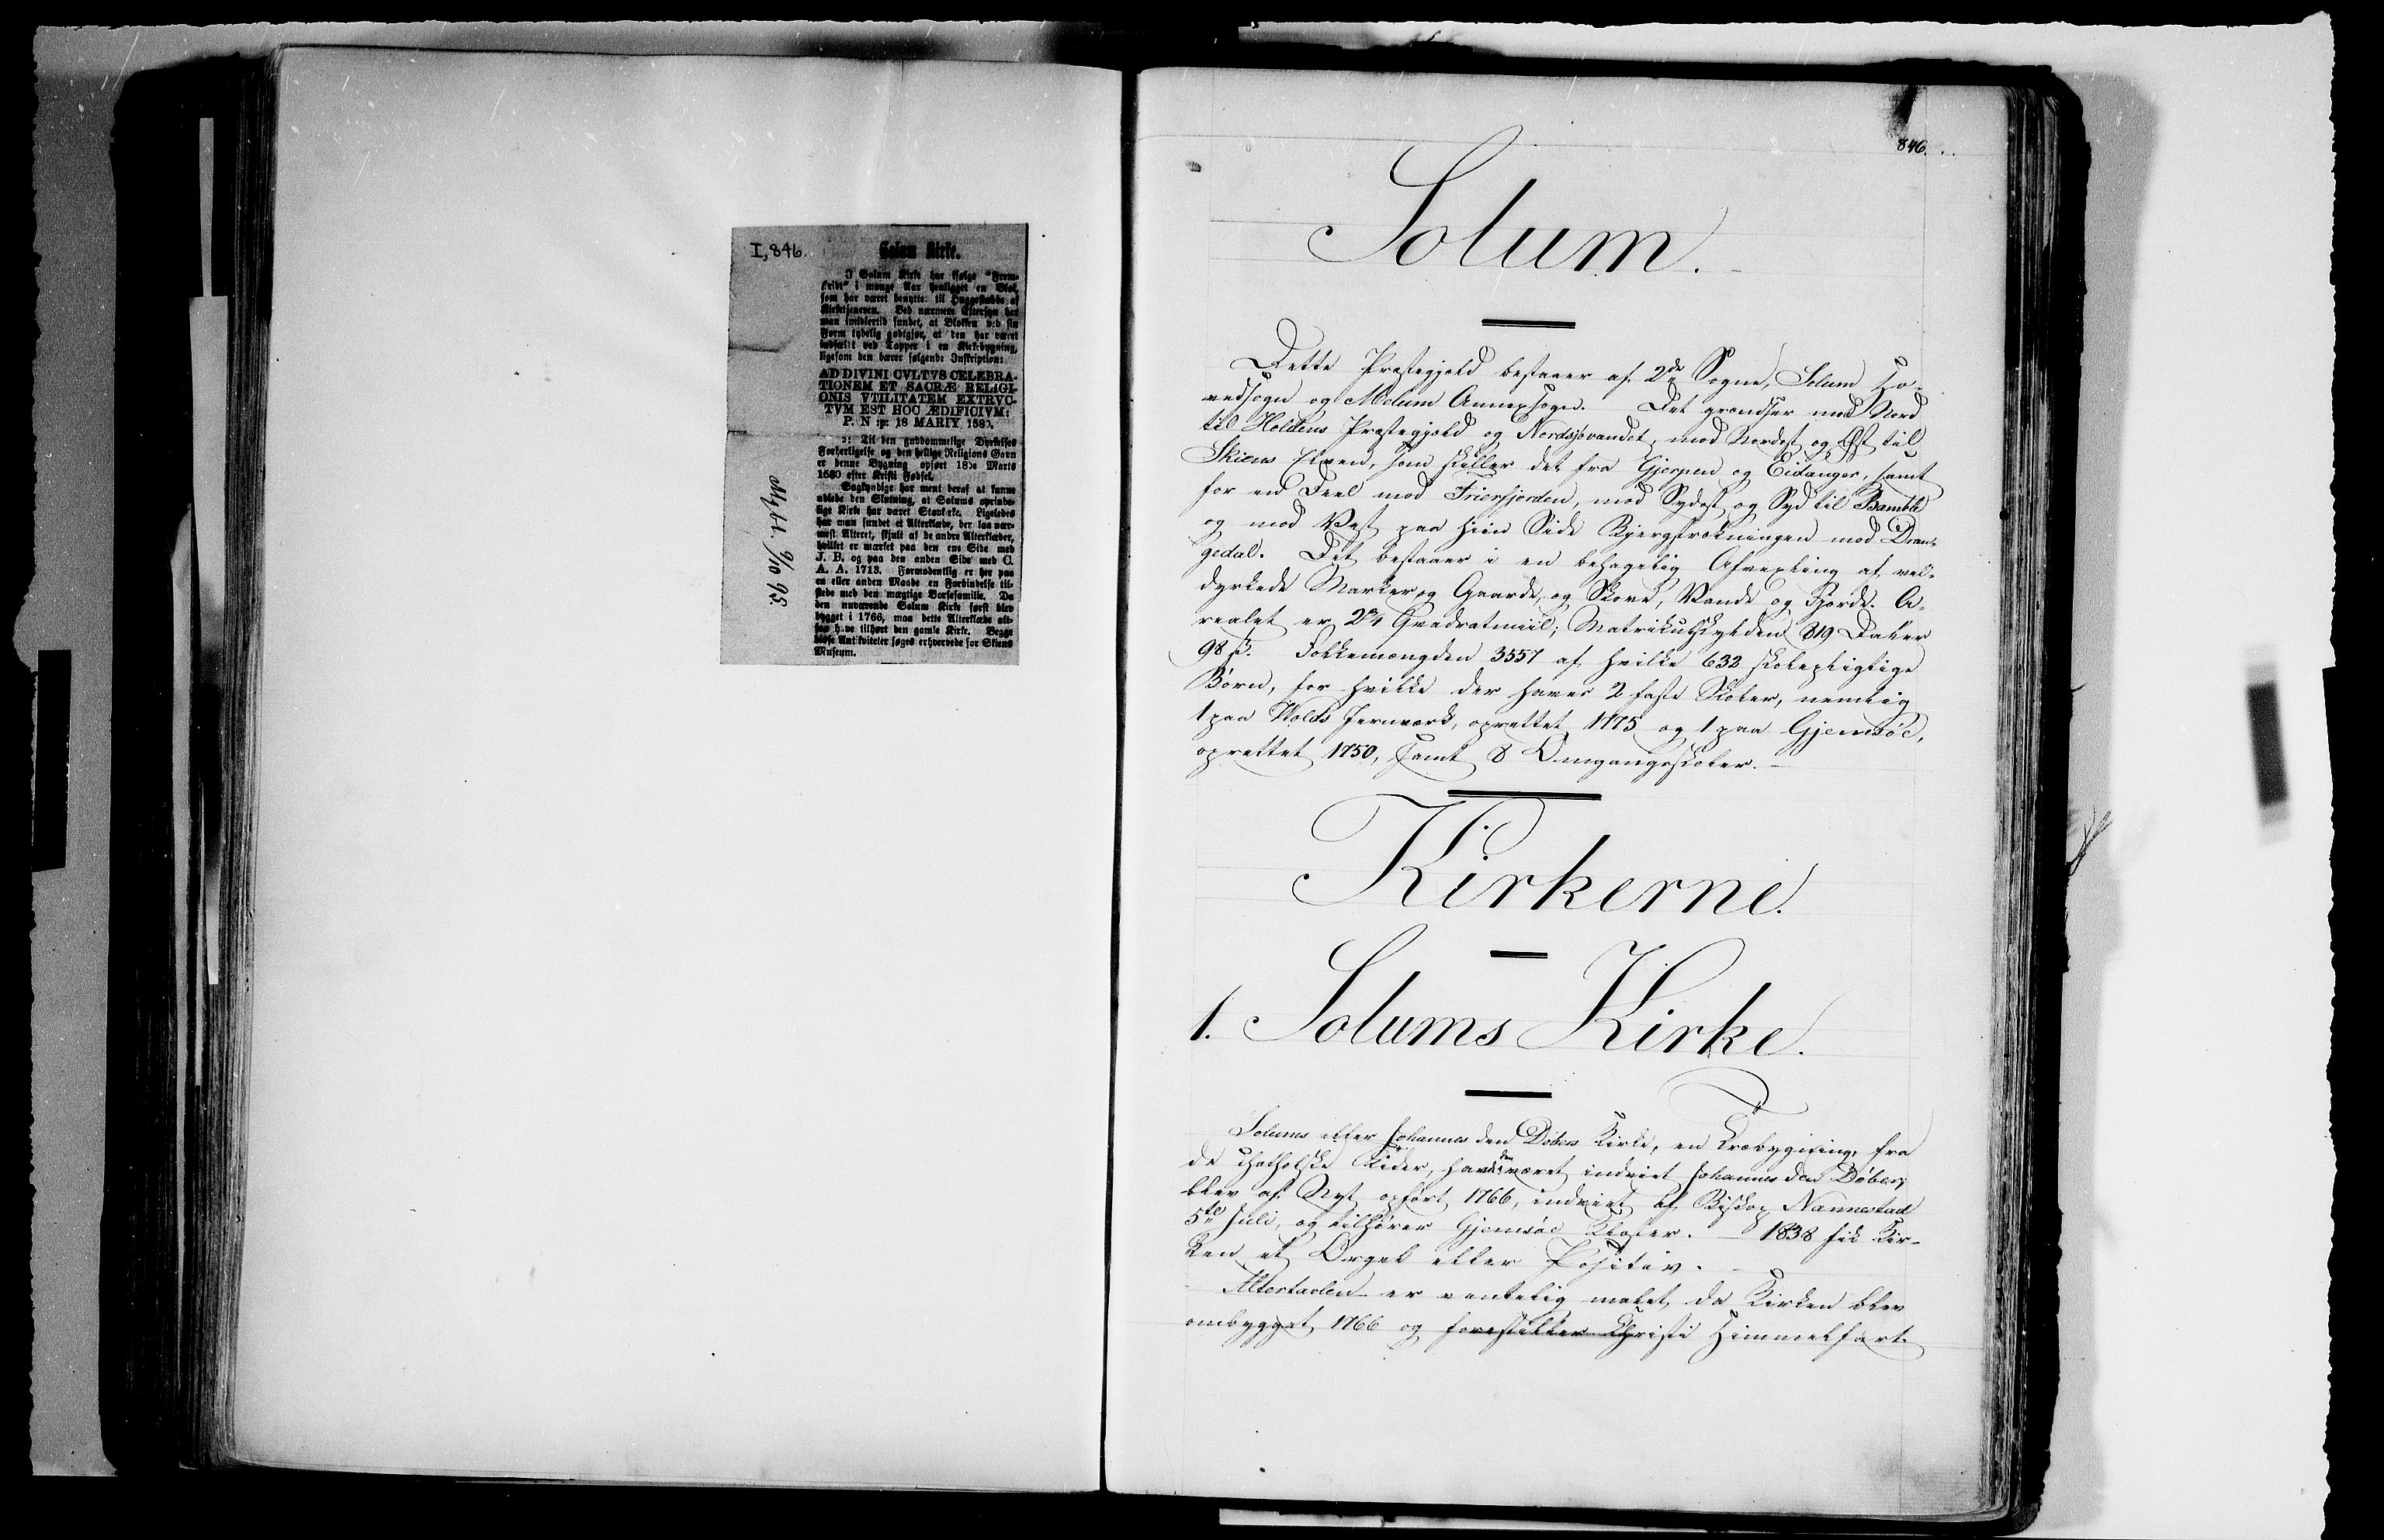 I, 846.
Solum Kirke.
I Solum Kirke har ifølge "Frem-
skridt" i mange Aar henligget en Blok,
som har været benyttet til Huggestabbe af
Kirketjeneren. Ved nærmere Eftersyn har
man imidlertid fundet, at Blokken ved sin
Form tydelig godtgjør, at den har været
indfældt ved Tapper i en Kirkebygning,
ligesom den bærer følgende Inskription:
AD DIVINI CVLTVS CELEBRA-
TIONEM ET SACRÆ RELIGI-
ONIS VTILITATEM EXTRVC-
TVM EST HOC ÆDIFICIVM:
P. N :p: 18 MARIY 1580.
ɔ: Til den guddommelige Dyrkelses
Forherligelse og den hellige Religions Gavn
er denne Bygning opført 18de Marts
1580 efter Kristi Fødsel.
Sagkyndige har ment deraf at kunne
udlede den Slutning, at Solums oprinde-
lige Kirke har været Stavkirke. Ligeledes
har man fundet et Alterklæde, der laa nær-
mest Alteret, skjult af de andre Alterklæder,
hvilket er mærket paa den ene Side med
J. B. og paa den anden Side med C.
A. A. 1713. Formodentlig er her paa
en eller anden Maade en Forbindelse til-
stede med den mægtige Borsefamilie. Da
den nuværende Solum Kirke først blev
bygget i 1766, maa dette Alterklæde alt-
saa have tilhørt den gamle Kirke. Begge
disse Antikviteter søges erhvervede for Skiens
Museum.
9/10 95.
846.
Solum.
Dette Præstegjeld bestaaer af 2de Sogne, Solum Ho-
vedsogn og Melum Annexsogn. Det grændser mod Nord
til Holdens Præstegjeld og Nordsjøvandet, mod Nordost og Øst til
Skiens Elven, som skiller det fra Gjerpen og Eidanger, samt
for en Deel mod Frierfjorden, mod Sydost og Syd til Bamble
og mod Vest paa hiin Side Bjergstrækningen mod Dran-
gedal. Det bestaaer i en behagelig Afvexling af vel-
dyrkede Marker og Gaarde, og Skove, Vande og Fjorde. A-
realet er 2¾ Qvadratmiil; Matrikulskylden 819 Daler
98 ß. Folkemængden 3557 af hvilke 632 skolepligtige
Børn, for hvilke der haves 2 faste Skoler, nemlig
1 paa Wolds Jernværk, oprettet 1775 og 1 paa Gjemsöe,
oprettet 1750, samt 8 Omgangsskoler. –
Kirkerne.
1. Solums Kirke.
Solums eller Johannes den Døbers Kirke, en Træbygning, fra
de chatholske Tider, havde den været indviet Johannes den Døber;
blev af Nyt opført 1766, indviet af Biskop Nannestad
5te Juli, og tilhører Gjemsöe Kloster. – 1838 fik Kir-
ken et Orgel eller Positiv. –
Altertavlen er ventelig malet, da Kirken blev
ombygget 1766 og forestiller Christi Himmelfart.